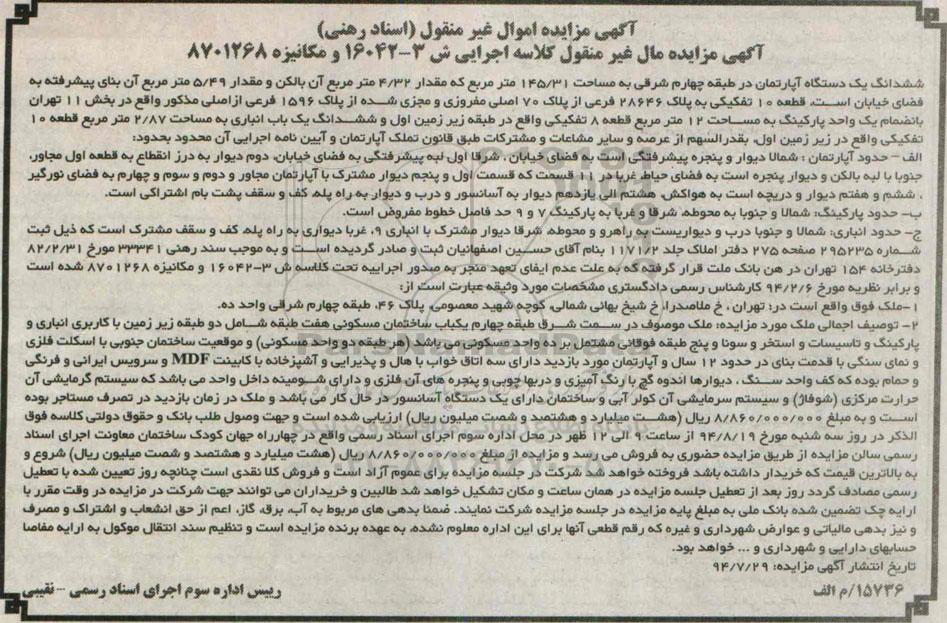 آگهی مزایده اموال غیر منقول (اسناد رهنی)
آگهی مزایده مال غیر منقول کلاسه اجرایی ش ۳-۱۶۰۴۲ و مکانیزه ۸۷۰۱۲۶۸
ششدانگ یک دستگاه آپارتمان در طبقه چهارم شرقی به مساحت ۱۴۵/۳۱ متر مربع که مقدار ۴/۳۲ متر مربع آن بالکن و مقدار ۵/۴۹ متر مربع آن بنای پیشرفته به
فضای خیابان است، قطعه ۱۰ تفکیکی به پلاک ۲۸۶۴۶ فرعی از پلاک ۷۰ اصلی مفروزی و مجزی شده از پلاک ۱۵۹۶ فرعی ازاصلی مذکور واقع در بخش ۱۱ تهران
بانضمام یک واحد پارکینگ به مساحت ۱۲ متر مربع قطعه ۸ تفکیکی واقع در طبقه زیر زمین اول و ششدانگ یک باب انباری به مساحت ۲/۸۷ متر مربع قطعه ۱۰
تفکیکی واقع در زیر زمین اول، بقدرالسهم از عرصه و سایر مشاعات و مشترکات طبق قانون تملک آپارتمان و آیین نامه اجرایی آن محدود بحدود:
الف - حدود آپارتمان : شمالا دیوار و پنجره پیشرفتگی است به فضای خیابان . شرقا اول لبه پیشرفتگی به فضای خیابان، دوم دیوار به درز انقطاع به قطعه اول مجاور،
جنوبا با لبه بالکن و دیوار پنجره است به فضای حیاط، غربا در ۱۱ قسمت که قسمت اول و پنجم دیوار مشترک با آپارتمان مجاور و دوم و سوم و چهارم به فضای نورگیر
، ششم و هفتم دیوار و دریچه است به هواکش، هشتم الی یازدهم دیوار به آسانسور و درب و دیوار به راه پله، کف و سقف پشت بام اشتراکی است.
ب- حدود پارکینگ: شمالا و جنوبا به محوطه، شرقا و غربا به پارکینگ ۷ و ۹ حد فاصل خطوط مفروض است.
ج- حدود انباری: شمالا و جنوبا درب و دیواریست به راهرو و محوطه، شرقا دیوار مشترک با انباری ۹، غربا دیواری به راه پله، کف و سقف مشترک است که ذیل ثبت
شماره ۲۹۵۲۳۵ صفحه ۲۷۵ دفتر املاک جلد ۱۱۷۱/۲ بنام آقای حسین اصفهانیان ثبت و صادر گردیده است و به موجب سند رهنی ۳۳۳۴۱ مورخ ۸۲/۲/۳۱
دفترخانه ۱۵۴ تهران در هن بانک ملت قرار گرفته که به علت عدم ایفای تعهد منجر به صدور اجراییه تحت کلاسه ش ۳-۱۶۰۴۲ و مکانیزه ۸۷۰۱۲۶۸ شده است
و برابر نظریه مورخ ۹۴/۲/۶ کارشناس رسمی دادگستری مشخصات مورد وثیقه عبارت است از:
۱-ملک فوق واقع است در: تهران ، خ ملاصدرا، خ شیخ بهائی شمالی، کوچه شهید معصومی، پلاک ۴۶، طبقه چهارم شرقی واحد ده.
۲- توصیف اجمالی ملک مورد مزایده: ملک موصوف در سمت شرق طبقه چهارم یکباب ساختمان مسکونی هفت طبقه شامل دو طبقه زیر زمین با کاربری انباری و
پارکینگ و تاسیسات و استخر و سونا و پنج طبقه فوقانی مشتمل بر ده واحد مسکونی می باشد (هر طبقه دو واحد مسکونی) و موقعیت ساختمان جنوبی با اسکلت فلزی
و نمای سنگی با قدمت بنای در حدود ۱۲ سال و آپارتمان مورد بازدید دارای سه اتاق خواب با هال و پذیرایی و آشپزخانه با کابینت MDF و سرویس ایرانی و فرنگی
و حمام بوده که کف واحد سنگ ، دیوارها اندوه گچ با رنگ آمیزی و دربها چوبی و پنجره های آن فلزی و دارای شومینه داخل واحد می باشد که سیستم گرمایشی آن
حرارت مرکزی (شوفاژ) و سیستم سرمایشی آن کولر آبی و ساختمان دارای یک دستگاه آسانسور در حال کار می باشد و ملک در زمان بازدید در تصرف مستاجر بوده
است و به مبلغ ۸/۸۶۰/۰۰۰/۰۰۰ ریال (هشت میلیارد و هشتصد و شصت میلیون ریال) ارزیابی شده است و جهت وصول طلب بانک و حقوق دولتی کلاسه فوق
الذکر در روز سه شنبه مورخ ۹۴/۸/۱۹ از ساعت ۹ الی ۱۲ ظهر در محل اداره سوم اجرای اسناد رسمی واقع در چهارراه جهان کودک ساختمان معاونت اجرای اسناد
رسمی سالن مزایده از طریق مزایده حضوری به فروش می رسد و مزایده از مبلغ ۸/۸۶۰/۰۰۰/۰۰۰ ریال (هشت میلیارد و هشتصد و شصت میلیون ریال) شروع و
به بالاترین قیمت که خریدار داشته باشد فروخته خواهد شد شرکت در جلسه مزایده برای عموم آزاد است و فروش کلا نقدی است چنانچه روز تعیین شده با تعطیل
رسمی مصادف گردد روز بعد از تعطیل جلسه مزایده در همان ساعت و مکان تشکیل خواهد شد طالبین و خریداران می توانند جهت شرکت در مزایده در وقت مقرر با
ارایه چک تضمین شده بانک ملی به مبلغ پایه مزایده در جلسه مزایده شرکت نمایند. ضمنا بدهی های مربوط به آب، برق، گاز، اعم از حق انشعاب و اشتراک و مصرف
و نیز بدهی مالیاتی و عوارض شهرداری و غیره که رقم قطعی آنها برای این اداره معلوم نشده، به عهده برنده مزایده است و تنظیم سند انتقال موکول به ارایه مفاصا
حسابهای دارایی و شهرداری و ... خواهد بود.
تاریخ انتشار آگهی مزایده: ۹۴/۷/۲۹
۱۵۷۳۶/م الف
رییس اداره سوم اجرای اسناد رسمی - نقیبی